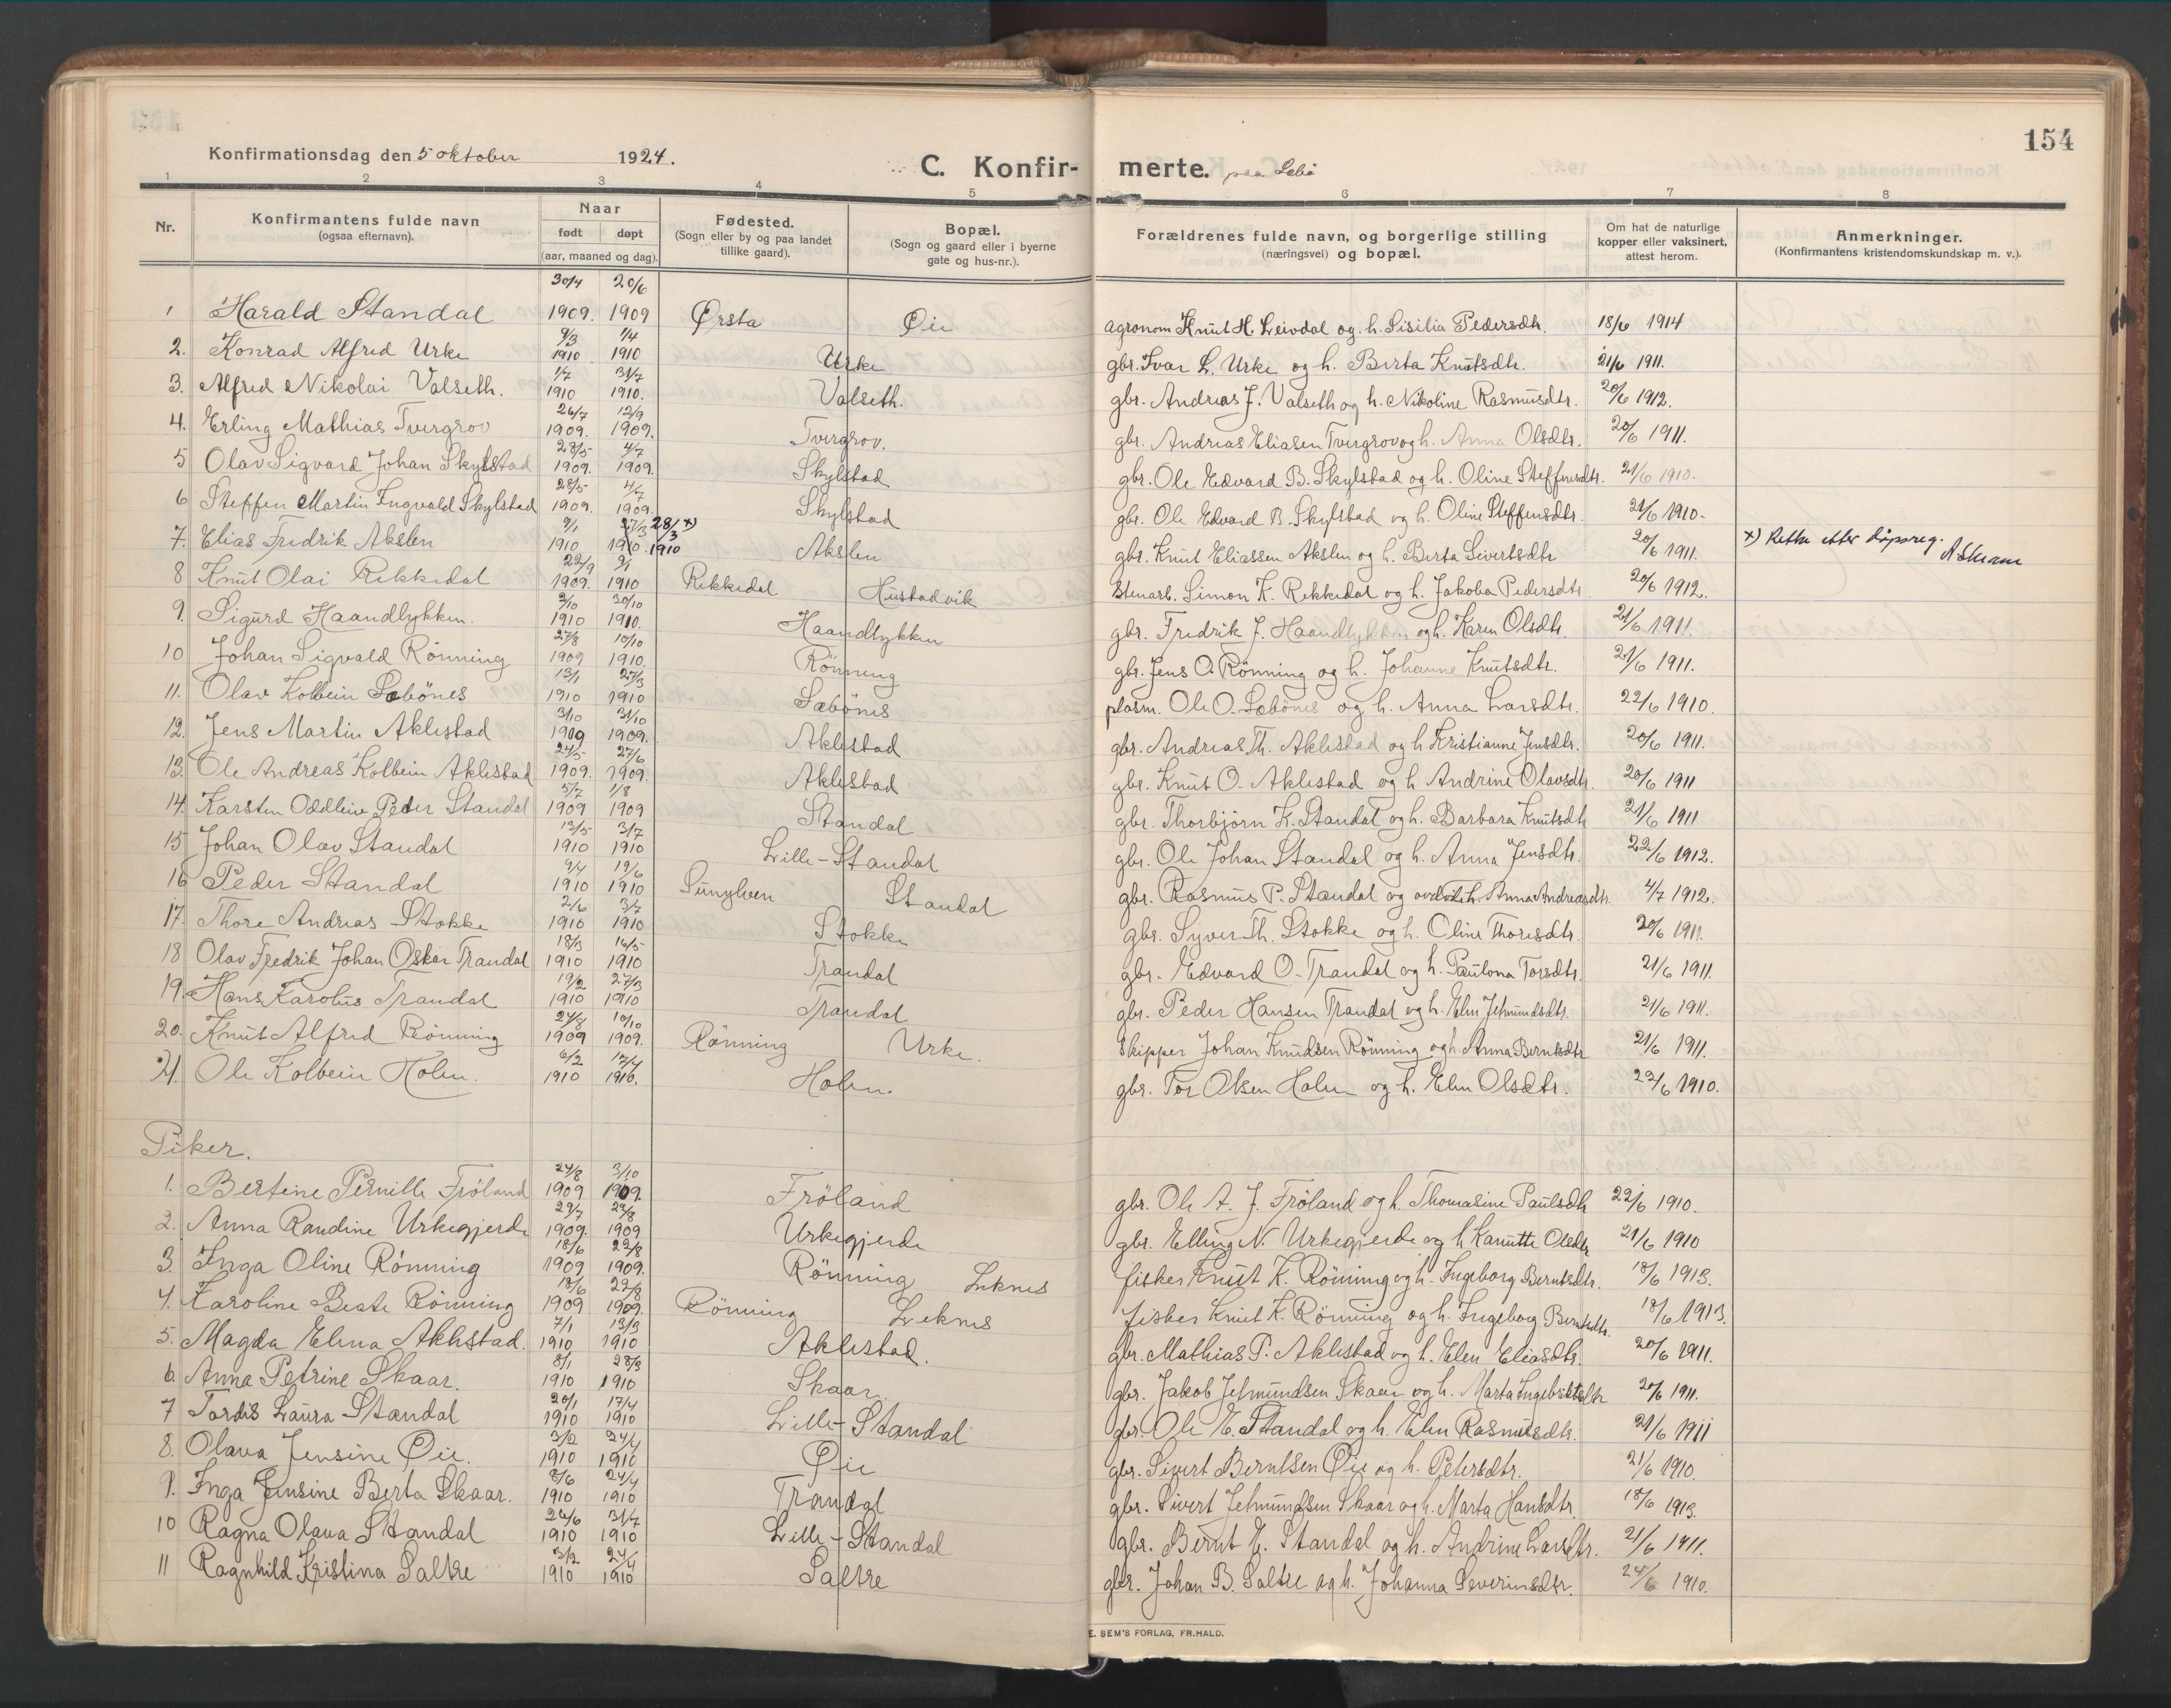 154
Konfirmationsdag den 5 oktober 1924.
C. Konfirmerte. paa Sæbö
1 2 3 4 5 6 7 8
Nr. | Konfirmantens fulde navn (ogsaa efternavn). | Naar født døpt (aar, maaned og dag). | Fødested. (Sogn eller by og paa landet tillike gaard). | Bopæl. (Sogn og gaard eller i byerne gate og hus-nr.). | Forældrenes fulde navn, og borgerlige stilling (næringsvei) og bopæl. | Om hat de naturlige kopper eller vaksinert, attest herom. | Anmerkninger. (Konfirmantens kristendomskundskap m. v.).
1 Harald Standal 30/4 1909. 20/6 1909 Ørsta Øie agronom Knut H. Leivdal og h. Sisilia Pedersdtr. 18/6 1914
2. Konrad Alfred Urke 9/3 1910 1/4 1910 Urke gbr. Ivar L. Urke og h. Berta Knutsdtr. 21/6 1911.
3. Alfred Nikolai Valseth. 1/7 1910 31/7 1910. Valseth. gbr. Andreas J. Valseth og h. Nikoline Rasmusdtr. 20/6 1912.
4. Erling Mathias Tvergrov 26/7 1909. 12/9 1909. Tvergrov. gbr. Andreas Eliasen Tvergrov og h. Anna Olsdtr. 20/6 1911.
5 Olav Sigvard Johan Skylstad 28/5 1909. 4/7 1909. Skylstad gbr. Ole Edvard B. Skylstad og h. Oline Steffensdtr. 21/6 1910.
6 Steffen Martin Ingvald Skylstad 28/5 1909. 4/7 1909. Skylstad gbr. Ole Edvard B. Skylstad og h. Oline Steffensdtr. 21/6 1910.
7. Elias Fredrik Akslen 9/1 1910 27/3 1910. 28/3 1910 x) Akslen gbr. Knut Eliassen Akslen og h. Berta Sivertsdtr 20/6 1911. x) Retta etter dåpsreg.
8 Knut Olai Rekkedal 22/9 1909. 9/1 1910 Rekkedal Hustadvik Stenarb. Simon K. Rekkedal og h. Jakoba Pedersdtr. 20/6 1912.
9. Sigurd Haandlykken. 2/10 1910 30/10 1910. Haandlykken gbr. Fredrik J. Haandlykken og h. Karen Olsdtr. 21/6 1911.
10 Johan Sigvald Rönning 27/8 1909 10/10 1910. Rönning gbr. Jens O. Rönning og h. Johanne Knutsdtr. 21/6 1911.
11. Olav Kolbein Sæbönes 13/1 1910 27/3 1910 Sæbönes plasm. Ole O. Sæbönes og h. Anna Larsdtr. 22/6 1910.
12. Jens Martin Aklestad 3/10 1909 31/10 1909. Aklestad gbr. Andreas Th. Aklestad og h. Kristianne Jensdtr. 20/6 1911.
13. Ole Andreas Kolbein Aklestad 24/5 1909. 27/6 1909. Aklestad gbr. Knut O. Aklestad og h Andrine Olavsdtr. 20/6 1911
14. Karsten Oddleiv Peder Standal 5/7 1909 1/8 1909 Standal gbr. Thorbjørn K. Standal og h. Barbara Knutsdtr 21/6 1911
15 Johan Olav Standal 13/5 1910 3/7 1910 Lille-Standal gbr. Ole Johan Standal og h. Anna Jensdtr. 22/6 1912.
16 Peder Standal 9/4 1910 19/6 1910 Sunylven Standal gbr. Rasmus P. Standal og avdøde h. Anna Andreasdtr. 4/7 1912.
17. Thore Andreas Stokke 2/6 1910 3/7 1910 Stokke gbr. Syver Th. Stokke og h. Oline Thoresdtr. 20/6 1911.
18 Olav Fredrik Johan Oskar Trandal 18/3 1910 16/5 1910 Trandal gbr. Edvard O. Trandal og h. Paulona Torsdtr. 21/6 1911.
19. Hans Karolus Trandal 19/2 1910 27/3 1910 Trandal gbr. Peder Hansen Trandal og h. Elen Jetmundsdtr. 21/6 1911.
20. Knut Alfred Rönning 24/8 1909 10/10 1909. Rönning Urke. Skipper Johan Knudsen Rönning og h. Anna Berntsdtr 21/6 1911.
21. Ole Kolbein Holen. 6/2 1910 17/4 1910. Holen. gbr. Tor Olsen Holen og h. Elen Olsdtr. 22/6 1910.
Piker.
1. Bertine Pernille Fröland 24/8 1909 3/10 1909. Fröland gbr. Ole A. J. Fröland og h. Thomasine Paulsdtr 22/6 1910.
2. Anna Randine Urkegjerde 29/7 1909. 22/8 1909 Urkegjerde gbr. Elling N. Urkegjerde og h Kanutte Olsdtr 21/6 1910
3. Inga Oline Rönning 18/6 1909 22/8 1909. Rönning Leknes fisker Knut K. Rönning og h. Ingeborg Berntsdtr. 18/6 1913.
4. Karoline Beate Rönning 18/6 1909 22/8 1909. Rönning Leknes fisker Knut K. Rönning og h. Ingeborg Berntsdtr. 18/6 1913.
5. Magda Elena Aklestad. 7/1 1910 13/3 1910 Aklestad. gbr. Mathias P. Aklestad og h. Elen Eliasdtr. 20/6 1911.
6. Anna Petrine Skaar. 8/1 1910 28/3 1910 Skaar. gbr. Jakob Jetmundsen Skaar og h. Marta Ingebriktsdtr 20/6 1911.
7 Tordis Laura Standal 20/1 1910 17/4 1910 Lille-Standal gbr. Ole E. Standal og h. Elen Rasmusdtr. 21/6 1911
8. Olava Jensine Øie. 3/2 1910 24/4 1910 Øie gbr. Sivert Berntsen Øie og h. Petersdtr. 21/6 1910.
9. Inga Jensine Berta Skaar. 8/6 1910 24/4 1910 Trandal gbr. Sivert Jetmundsen Skaar og h. Marta Hansdtr. 18/6 1913.
10 Ragna Olava Standal 26/6 1910 31/7 1910 Lille-Standal gbr. Bernt E. Standal og h. Andrine Larsdtr. 21/6 1911.
11 Ragnhild Kristina Saltre 3/2 1910 24/4 1910 Saltre gbr. Johan B. Saltre og h. Johanna Severinsdtr. 24/6 1910.
E. SEM'S FORLAG, FR.HALD.